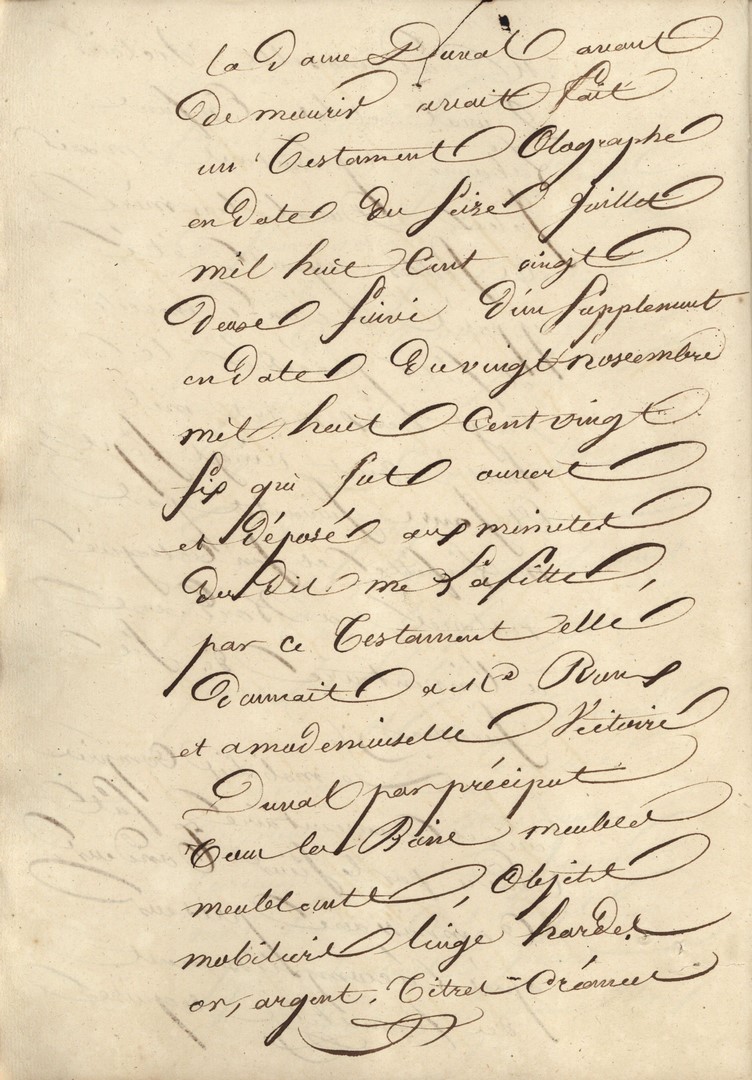 la Dame Duval avant
de mourir avait fait
un Testament Olographe
en Date du seize Juillet
mil huit Cent vingt
deux suivi d'un supplement
en Date du vingt novembre
mil huit Cent vingt
six qui fut ouvert
et déposé aux minutes
du dit me Lafitte,
par ce Testament elle
donnait a Md Roux
et a mademoiselle Victoire
Duval par préciput
Tous les Biens meubles
meublants, Objets
mobiliers linge hardes
or, argent, Titres Créances